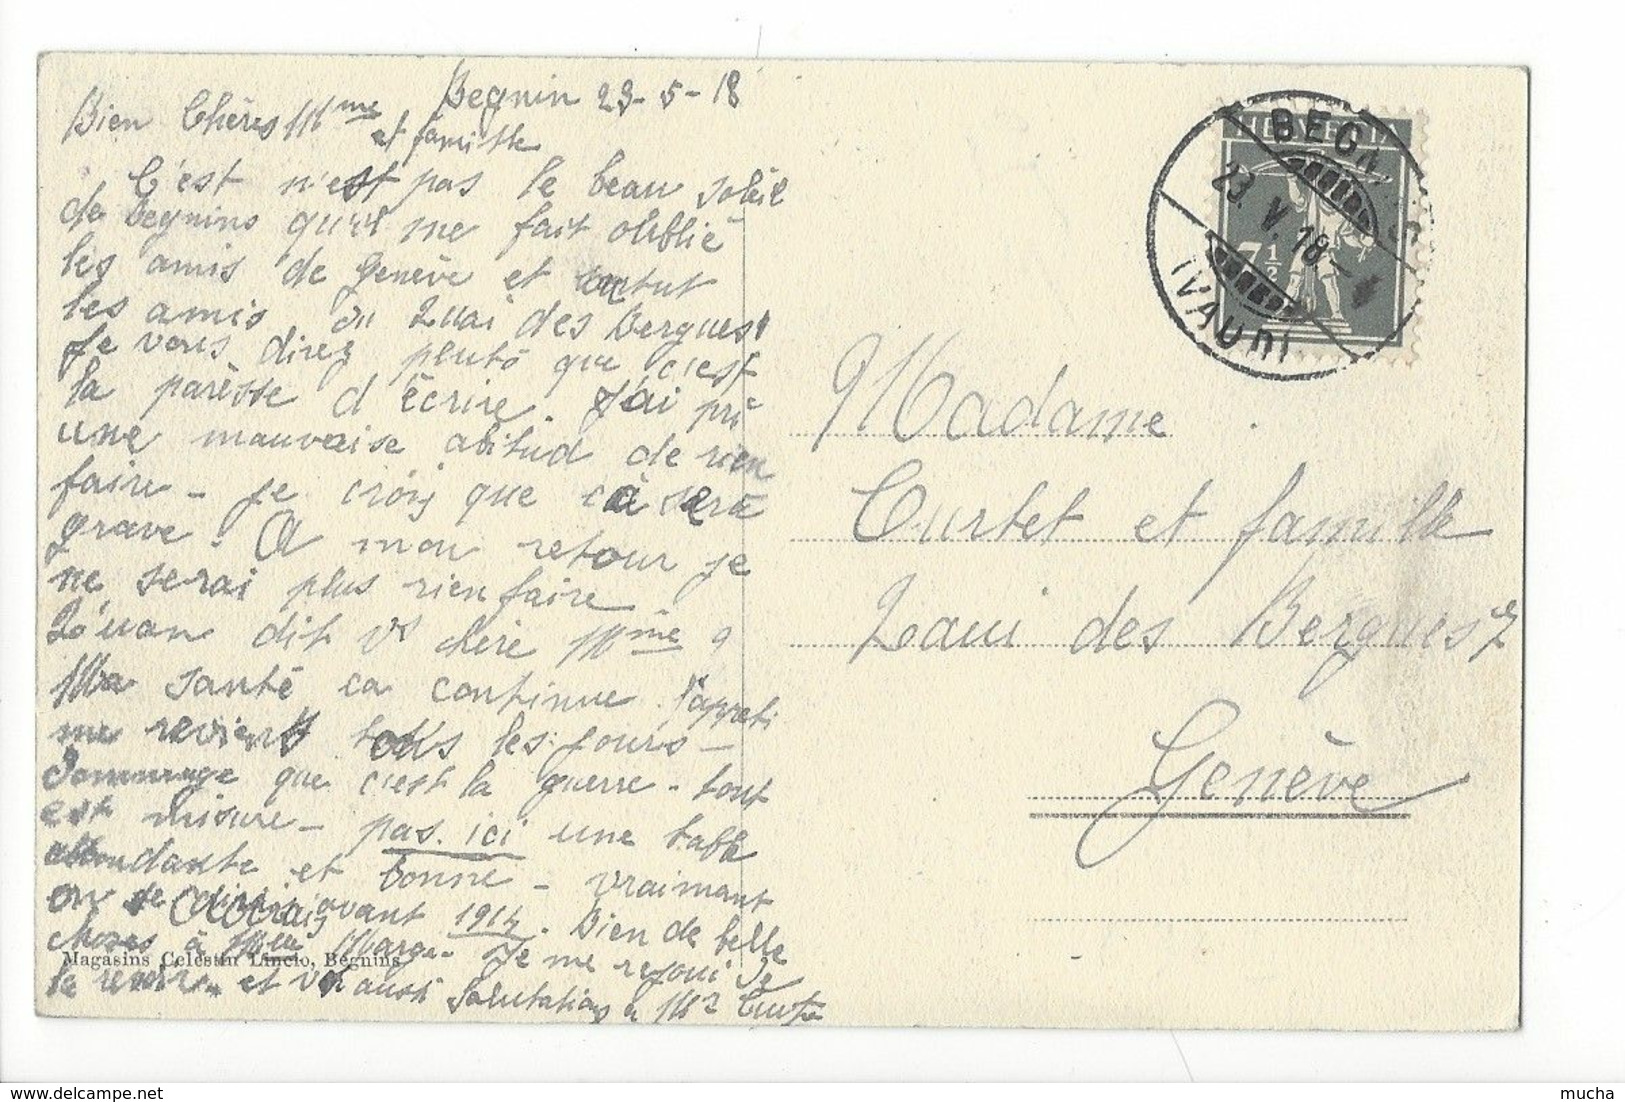 Begnin 23-5-18
Bien Chères Mme et famille
C'est n'est pas le beau soleil
de Begnins qu'il me fait oublié
les amis de Genève et surtut
les amis du Quai des Bergues!
Je vous direz plutô que c'est
la parèsse d'écrire. J'ai pri
une mauvaise abitud de rien
faire - je crois que cà sera
grave. A mon retour je
ne serai plus rien faire
Qu'uan dit vs chère Mme ?
Ma santé ca continue. l'appeti
me revient tous les jours -
Dommage que c'est la guerre - tout
est misure - pas ici une table
abondante et bonne - vraimant
on se avant 1914. Bien de belle
choses à Mlle Marge. Je me rejoui de
la revoir - et vs aussi Salutations à Mr Curte
Magasins Célestin Lincio, Bégnins
HELVETIA
7½
BEGNINS
23. V. 18
(VAUD)
Madame
Curtet et famille
Qaui des Bergues 7
Genève
mucha